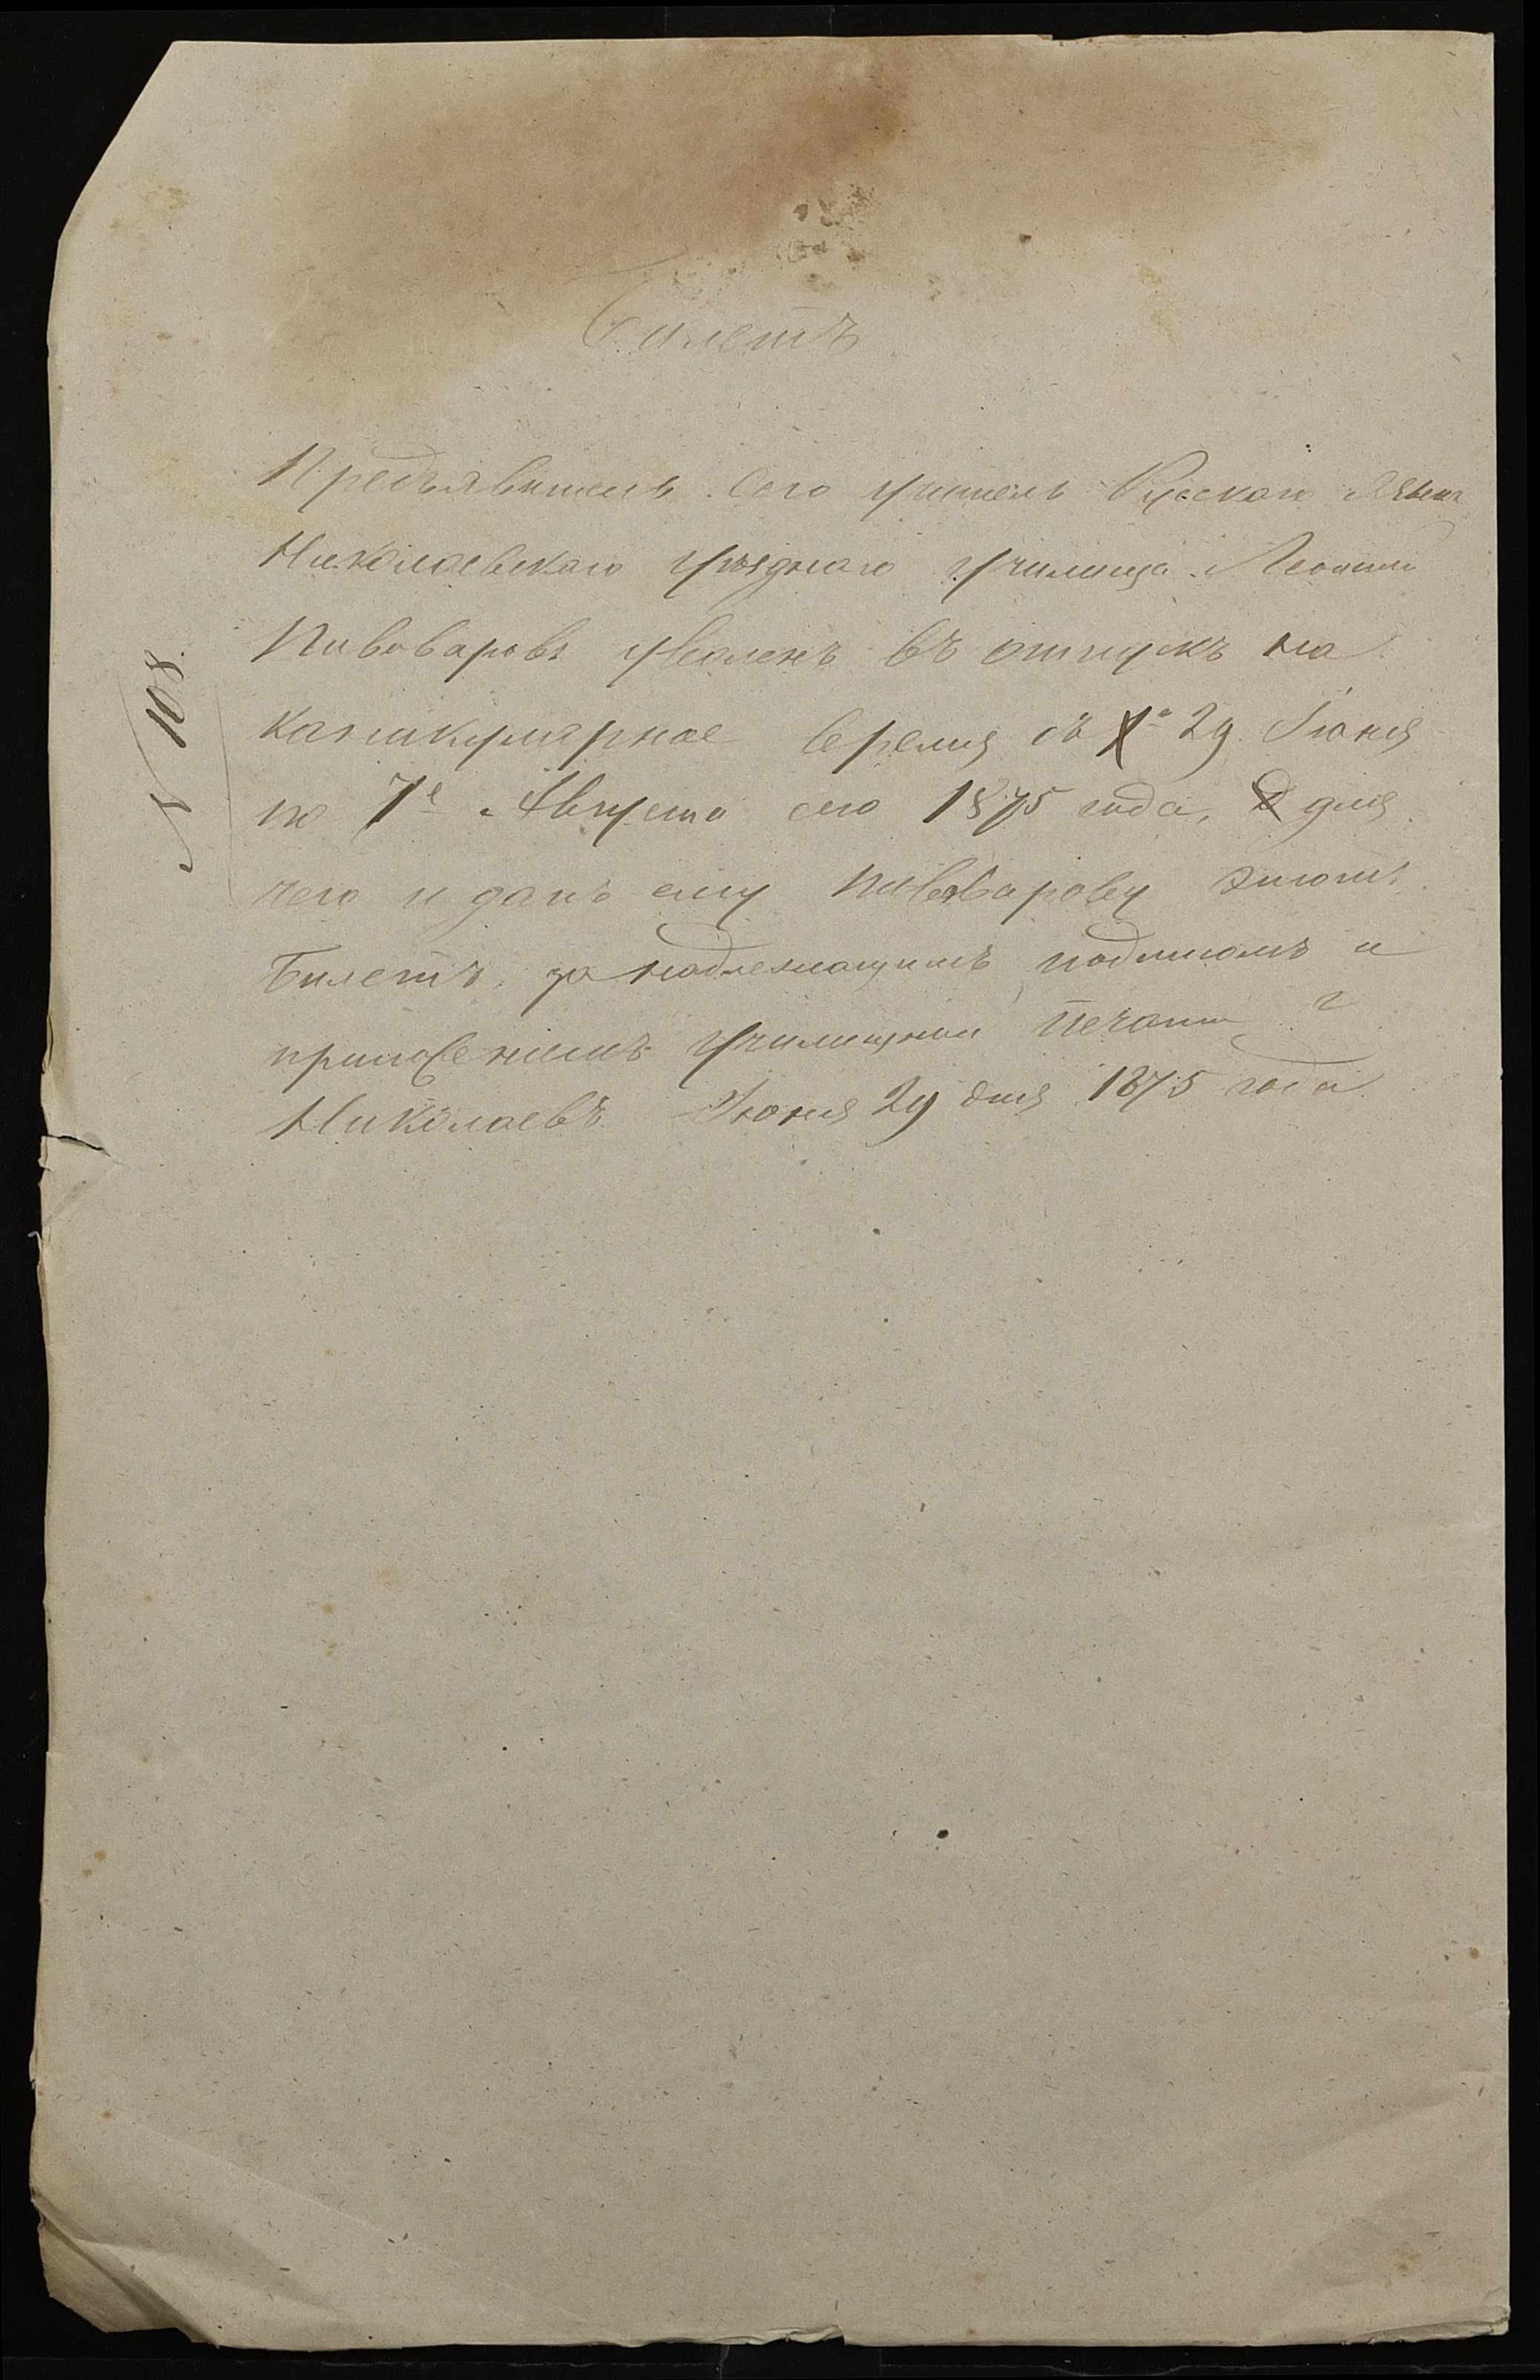 Билетъ
Предъявитель сего учитель Русскаго языка
Николаевскаго уѣзднаго училища Леонтий
Пивоваровъ уволенъ въ отпускъ на
каникулярное время съ 29 Іюня
по 7е Августа сего 1875 года, для
чего и данъ ему Пивоварову этотъ
Билетъ, за надлежащимъ подписомъ и
приложениемъ училищной печати г
Николаевъ Іюня 29 дня 1875 года
N 108.